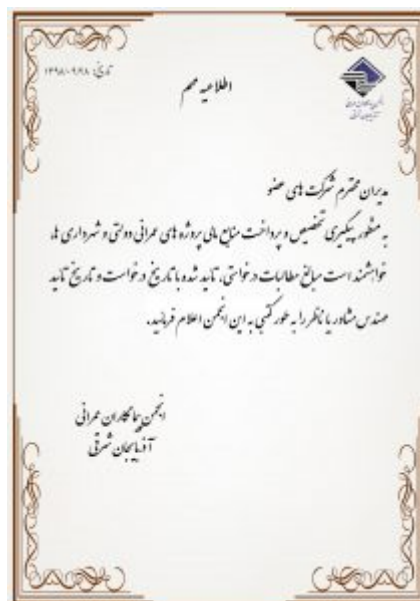 تاریخ: ۱۳۹۸/۰۹/۱۸
انجمن پیمانکاران عمرانی
آذربایجان شرقی
اطلاعیه مهم
مدیران محترم شرکت های عضو
به منظور پیگیری تخصیص و پرداخت منابع مالی پروژه های عمرانی دولتی و شهرداری ها،
خواهشمند است مبالغ مطالبات درخواستی، تایید شده با تاریخ درخواست و تاریخ تایید
مهندس مشاور یا ناظر را به طور کتبی به این انجمن اعلام فرمائید.
انجمن پیمانکاران عمرانی
آذربایجان شرقی